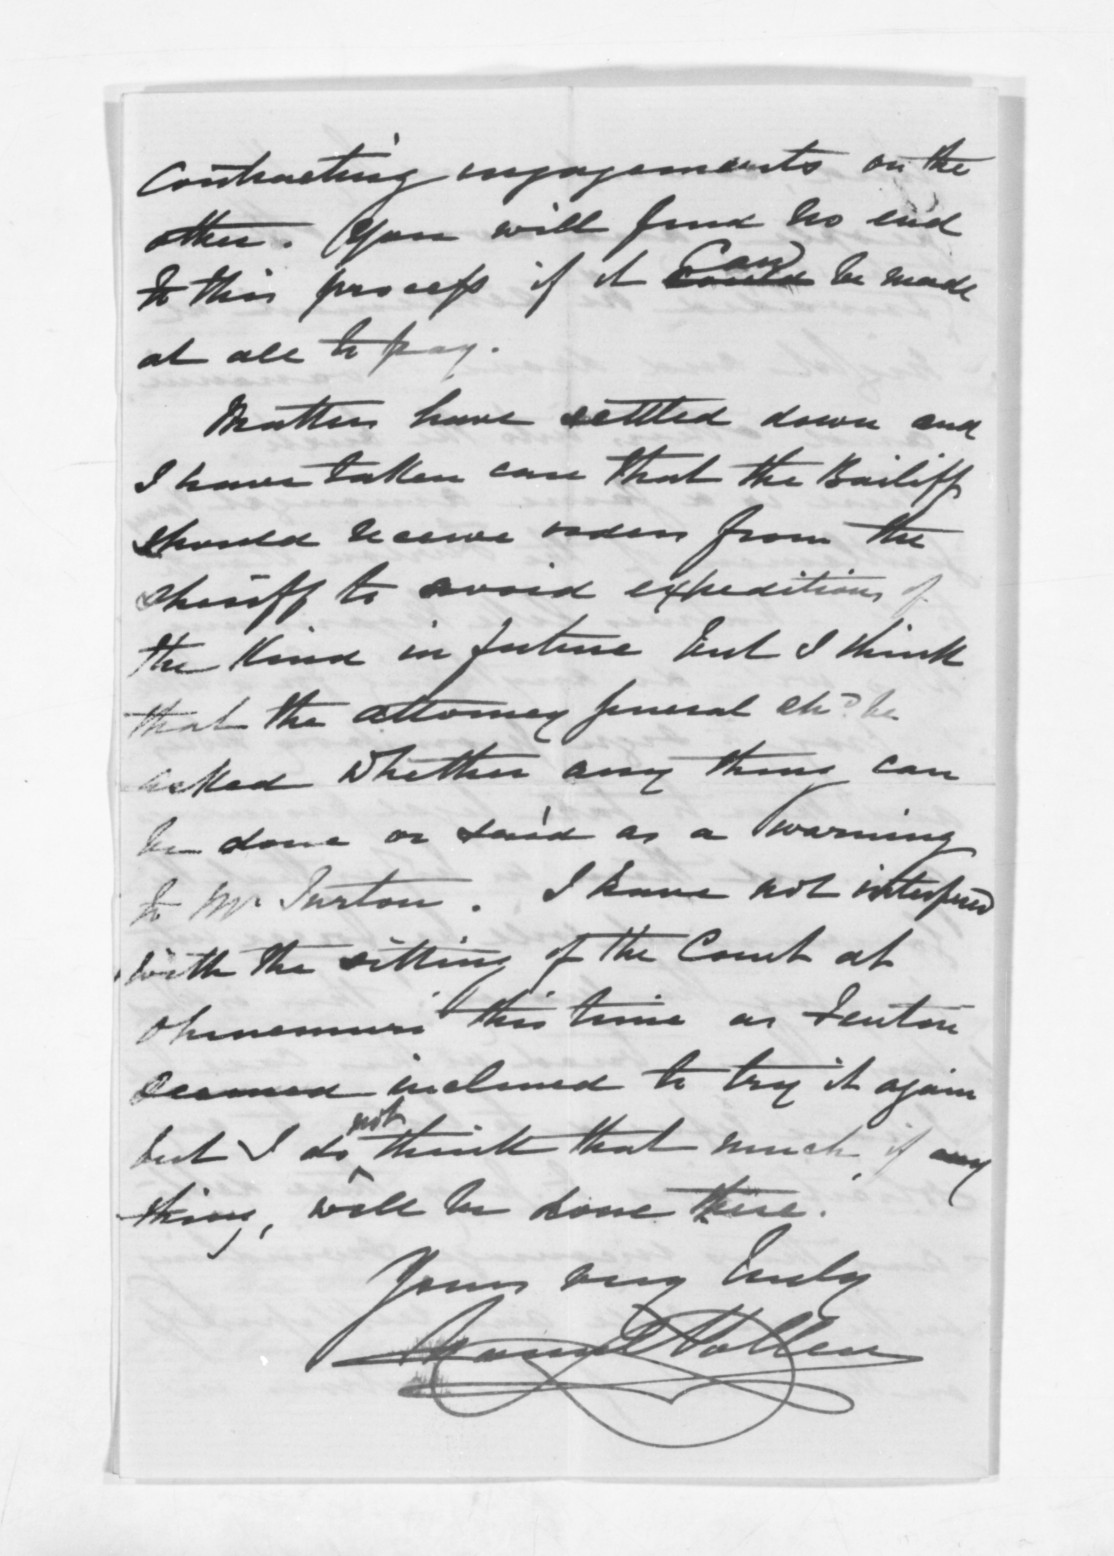 contracting engagements on the
other. You will find no end
to this process if it could can be made
at all to pay.
Matters have settled down and
I have taken care that the Bailiff
should receive orders from the
Sheriff to avoid expeditions of
the kind in future but I think
that the Attorney General shd be
asked whether any thing can
be done or said as a warning
to Mr Turton. I have not interfered
with the sitting of the Court at
Ohinemuri this time as Fenton
seemed inclined to try it again
but I do not think that much, if any
thing, will be done there.
Yours very truly
Daniel Pollen